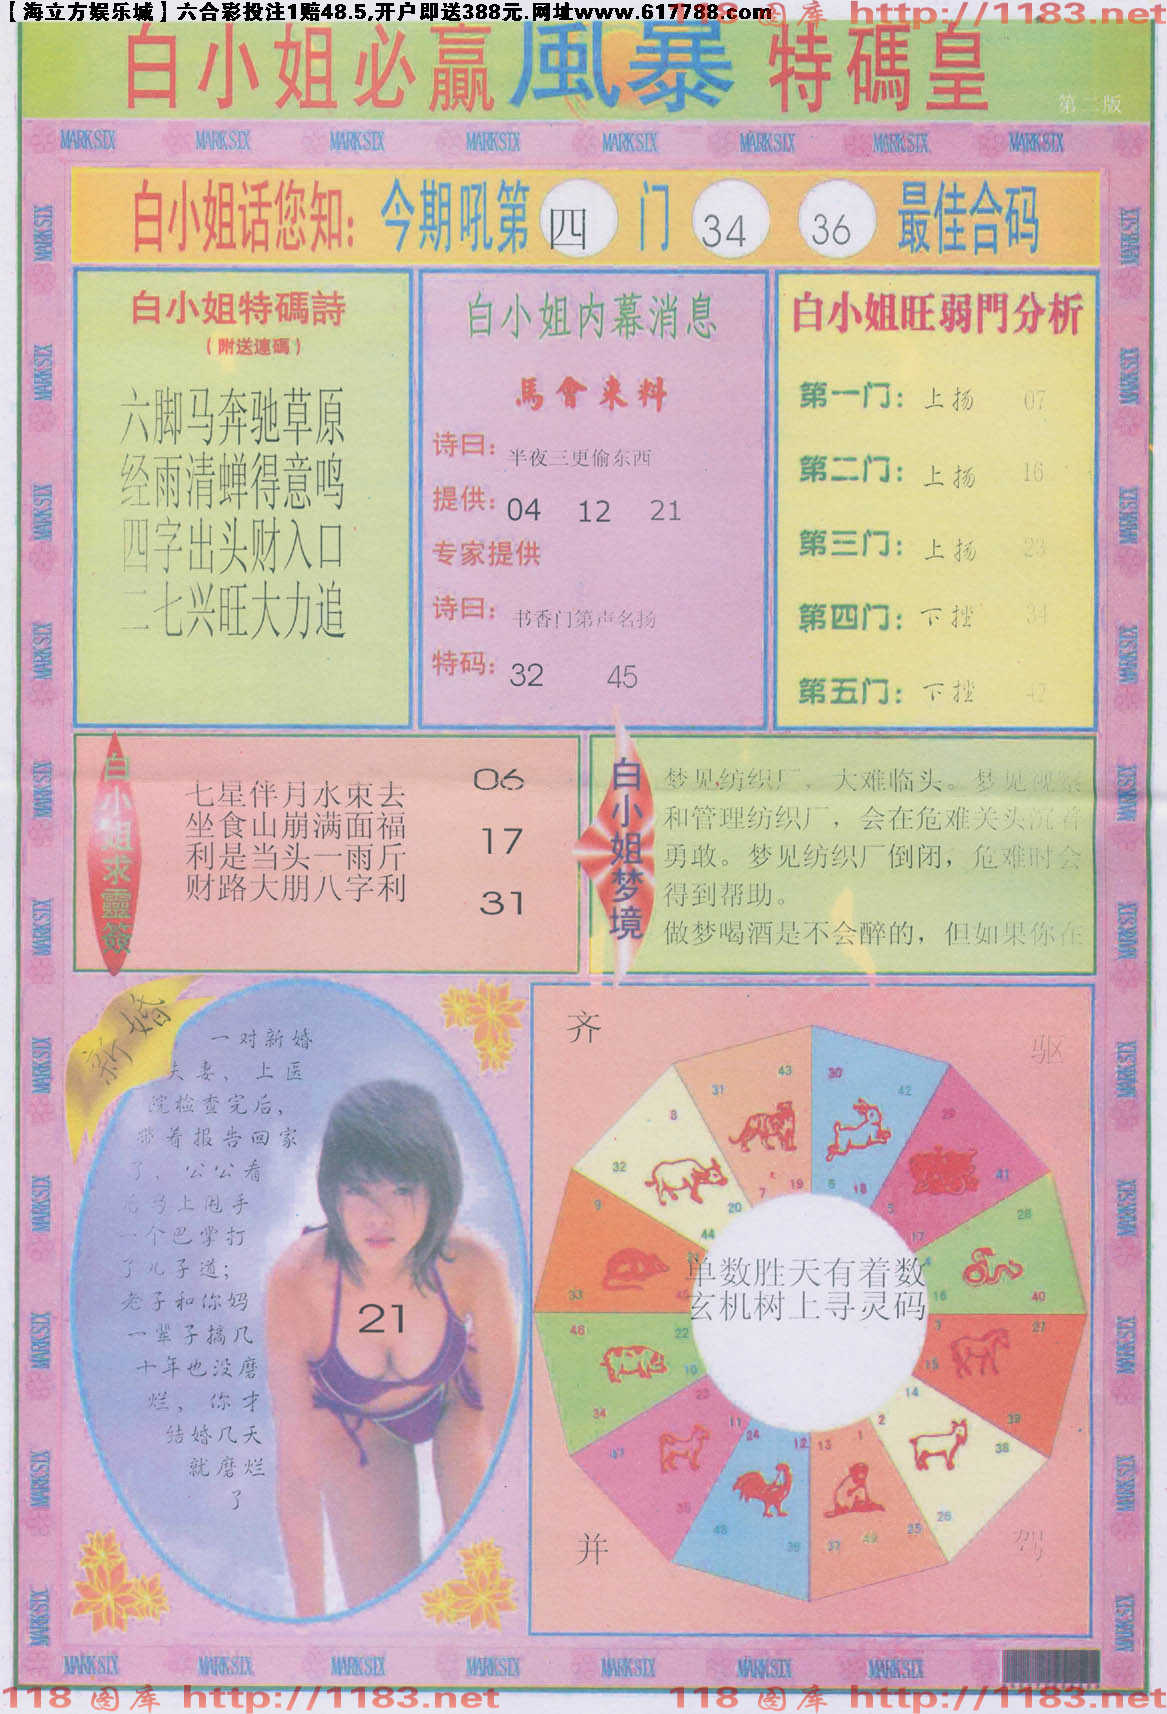 【海立方娱乐城】六合彩投注1赔48.5,开户即送388元.网址www.617788.com
118 图库 http://1183.net
白小姐必赢 風暴 特碼皇
第二版
MARK SIX MARK SIX MARK SIX MARK SIX MARK SIX MARK SIX MARK SIX MARK SIX
白小姐话您知: 今期吼第 四 门 34 36 最佳合码
白小姐特碼詩
(附送連碼)
六脚马奔驰草原
经雨清蝉得意鸣
四字出头财入口
二七兴旺大力追
白小姐内幕消息
馬會来料
诗曰: 半夜三更偷东西
提供: 04 12 21
专家提供
诗曰: 书香门第声名扬
特码: 32 45
白小姐旺弱門分析
第一门: 上扬 07
第二门: 上扬 16
第三门: 上扬 23
第四门: 下挫 34
第五门: 下挫 42
白小姐求靈簽
七星伴月水東去
坐食山崩满面福
利是当头一雨斤
财路大朋八字利
06
17
31
白小姐梦境
梦见纺织厂,大难临头。梦见视察
和管理纺织厂，会在危难关头沉着
勇敢。梦见纺织厂倒闭，危难时会
得到帮助。
做梦喝酒是不会醉的，但如果你在
新婚
一对新婚
夫妻、上医
院检查完后,
带着报告回家
了、公公看
后马上甩手
一个巴掌打
了儿子道;
老子和你妈
一辈子搞几
十年也没磨
烂, 你才
结婚几天
就磨烂
了
21
齐
驱
并
驾
单数胜天有着数
玄机树上寻灵码
43 31 7 19
30 42 6 18
29 41 5 17
28 4 16 40
27 3 15 39
14 2 38 26
1 13 25 37 49
12 24 36 48
11 23 35 47
46 22 10 34
9 33
8 32 20 44
MARK SIX MARK SIX MARK SIX MARK SIX MARK SIX MARK SIX MARK SIX
118 图库 http://1183.net 118 图库 http://1183.net